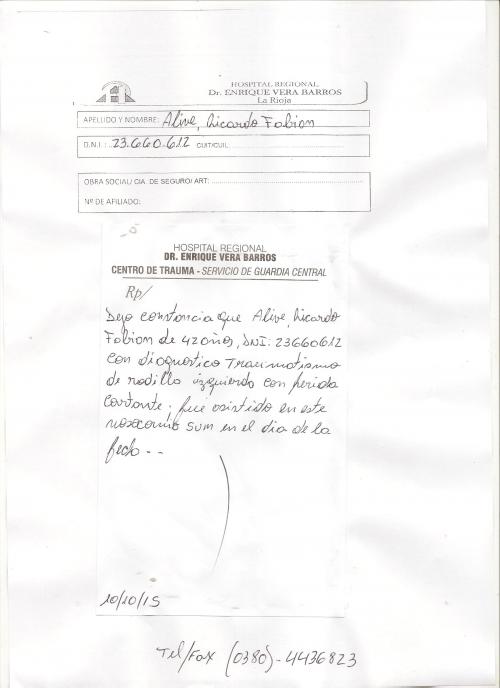 HOSPITAL REGIONAL
Dr. ENRIQUE VERA BARROS
La Rioja
APELLIDO Y NOMBRE: Alive, Ricardo Fabian
D.N.I.: 23.660.612 CUIT/CUIL:
OBRA SOCIAL/ CIA. DE SEGURO/ ART:
Nº DE AFILIADO:
HOSPITAL REGIONAL
DR. ENRIQUE VERA BARROS
CENTRO DE TRAUMA - SERVICIO DE GUARDIA CENTRAL
Rp/
Dejo constancia que Alive, Ricardo
Fabian de 42 años, DNI: 23660612
con diagnostico Traumatismo
de rodilla izquierda con herida
cortante; fue asistido en este
nosocomio en el dia de la
fecha --
10/10/15
Tel/Fax (0380)-4436823